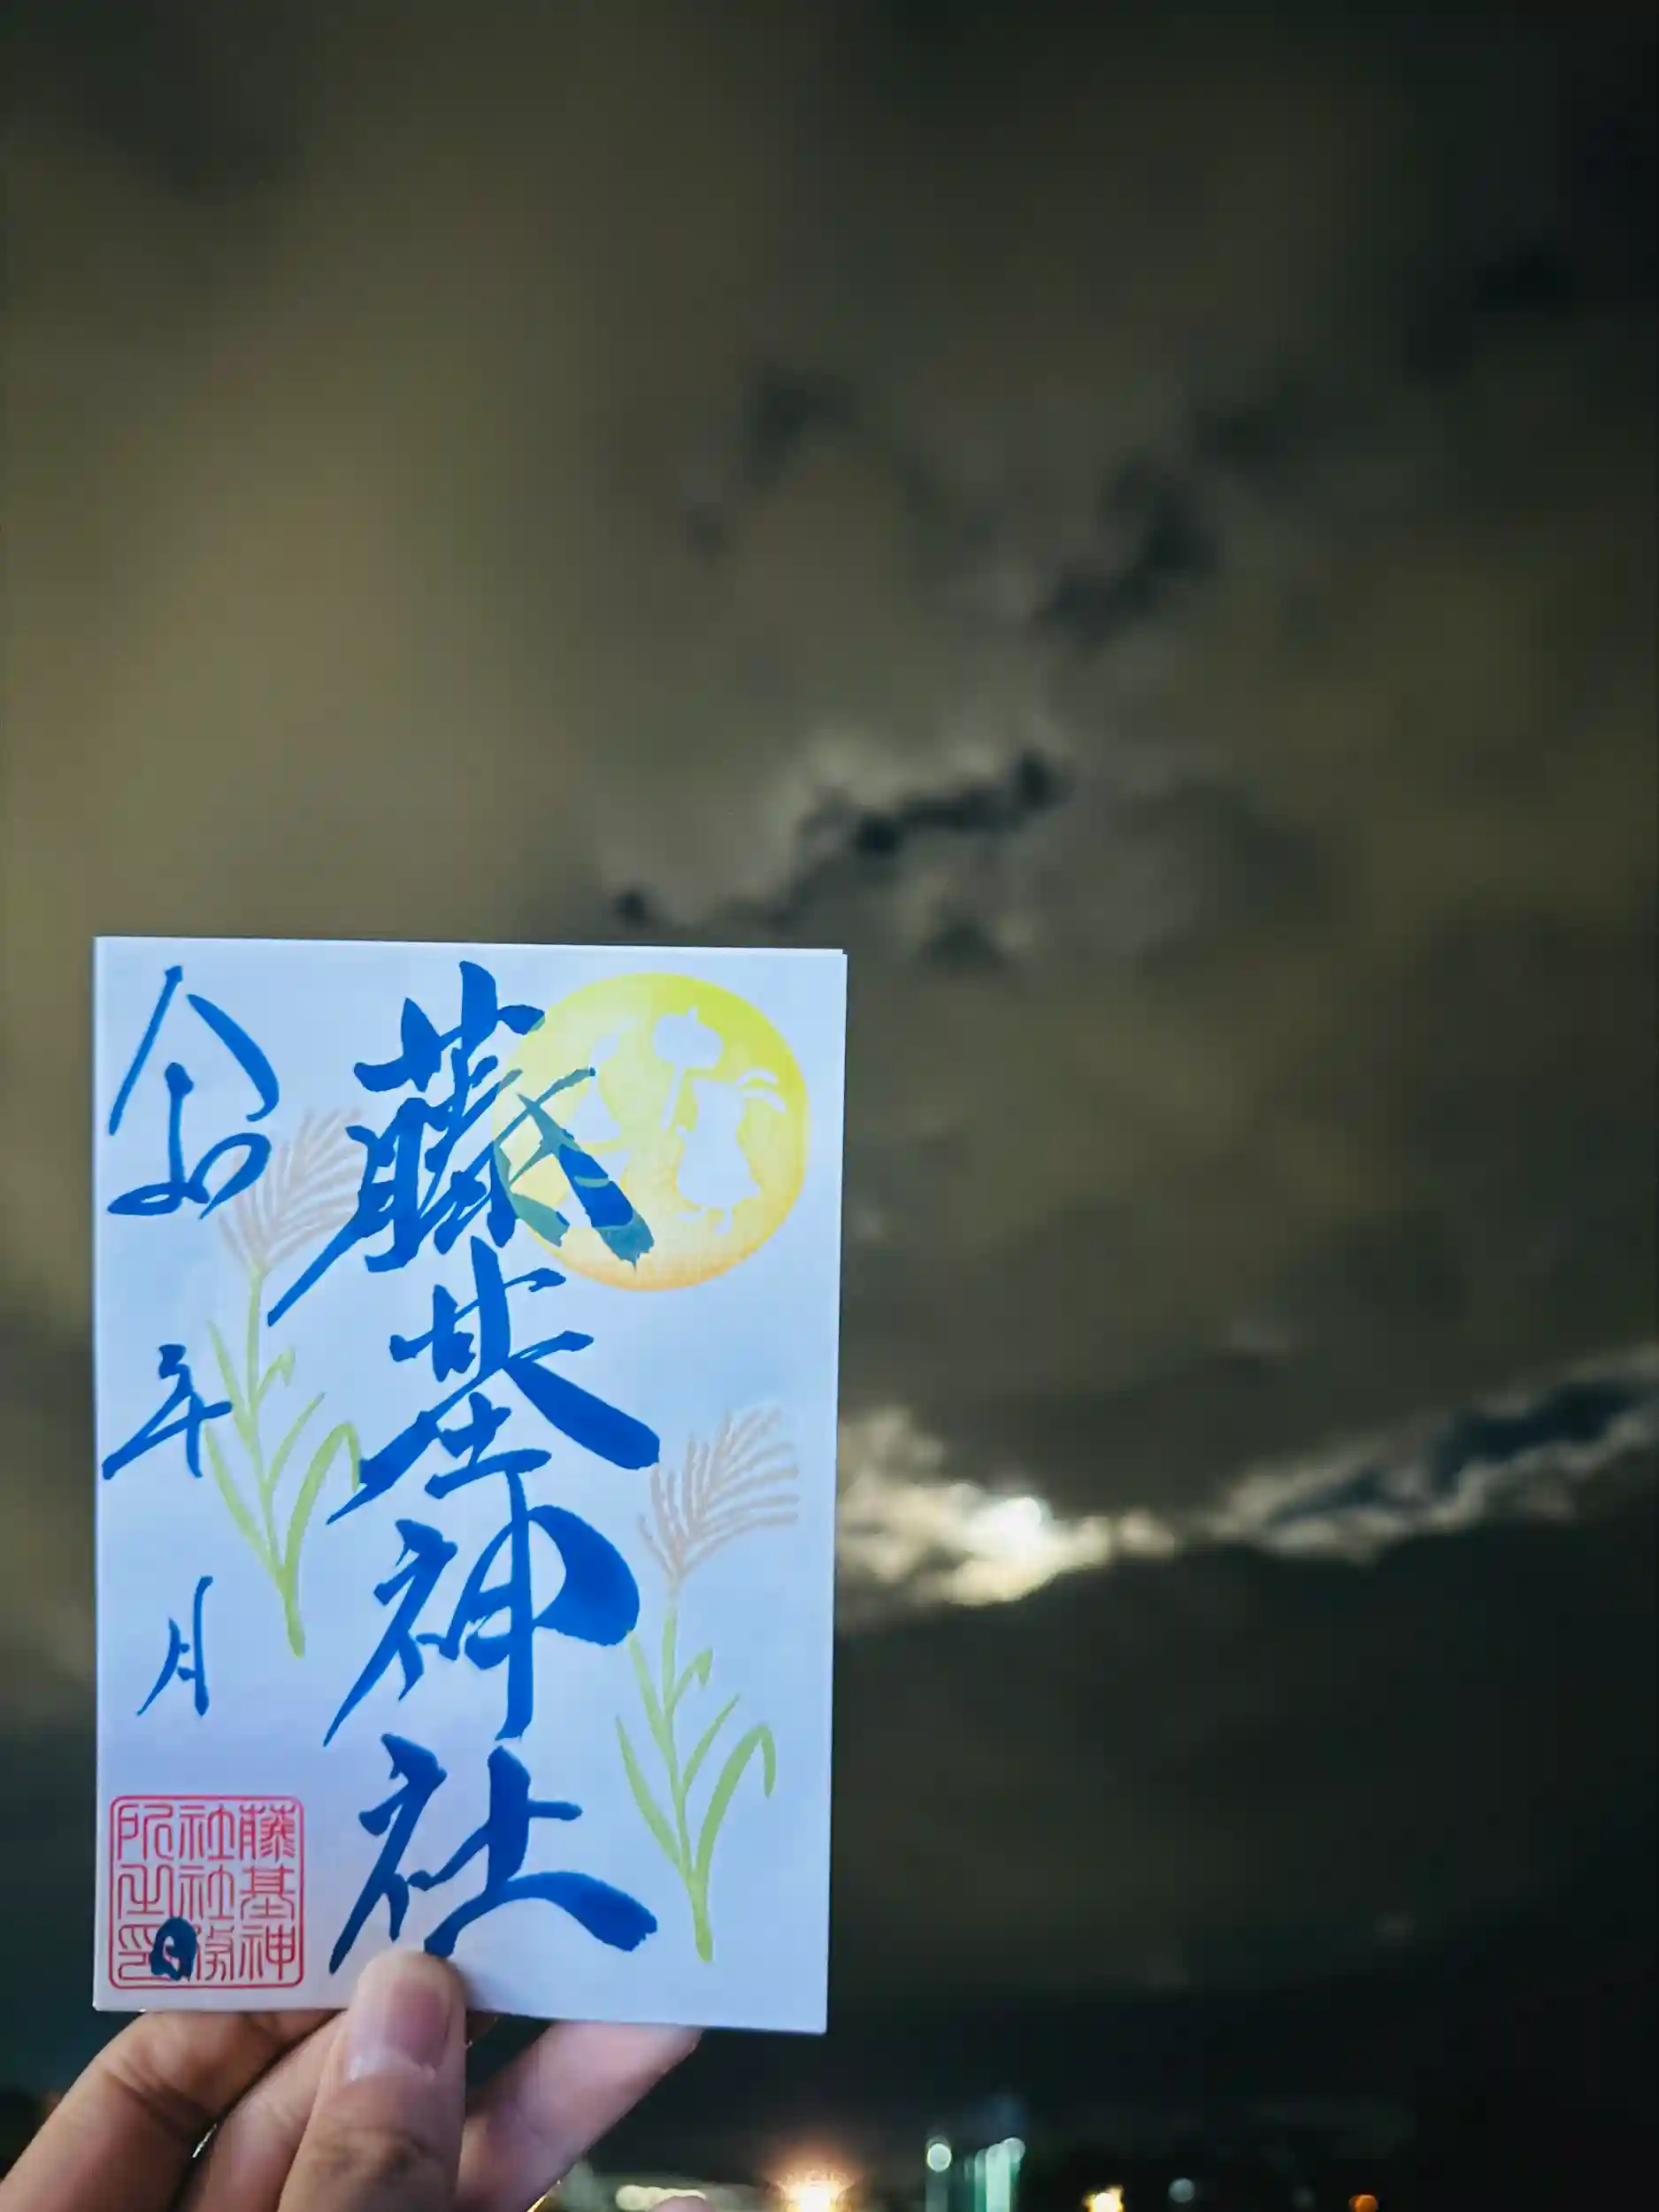 藤基神社
令和
年
月
藤基神
社社務
所之印